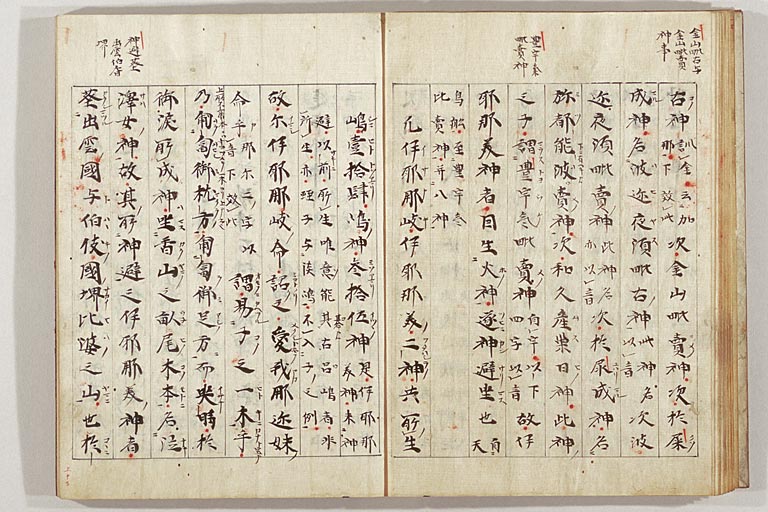 金山毗古与
金山毗賣
神事
豊宇氣
毗賣神
古神訓金云加那下效此次金山毗賣神次於屎
成神名波迩夜須毗古神此神名以音次波
迩夜須毗賣神此神名亦以音次於尿成神名
弥都能波賣神次和久産巣日神此神
之子謂豊宇氣毗賣神自宇以下四字以音故伊
耶那美神者因生火神遂神避坐也自天
鳥船至豊宇氣
比賣神并八神
凡伊耶那岐伊耶那美二神共所生
神避葬
出雲伯耆
堺
嶋壹拾肆嶋神叁拾伍神是伊耶那美神未神
避以前所生唯意能其古呂嶋者非
所生亦蛭子与淡嶋不入子之例
故尓伊耶那岐命詔之愛我那迩妹
命乎那尓二字以音下效此謂易子之一木乎
乃匍匐御枕方匍匐御足方而哭時於
御涙所成神坐香山之畝尾木本名泣
澤女神故其所神避之伊耶那美神者
葬出雲國与伯伎國堺比婆之山也於